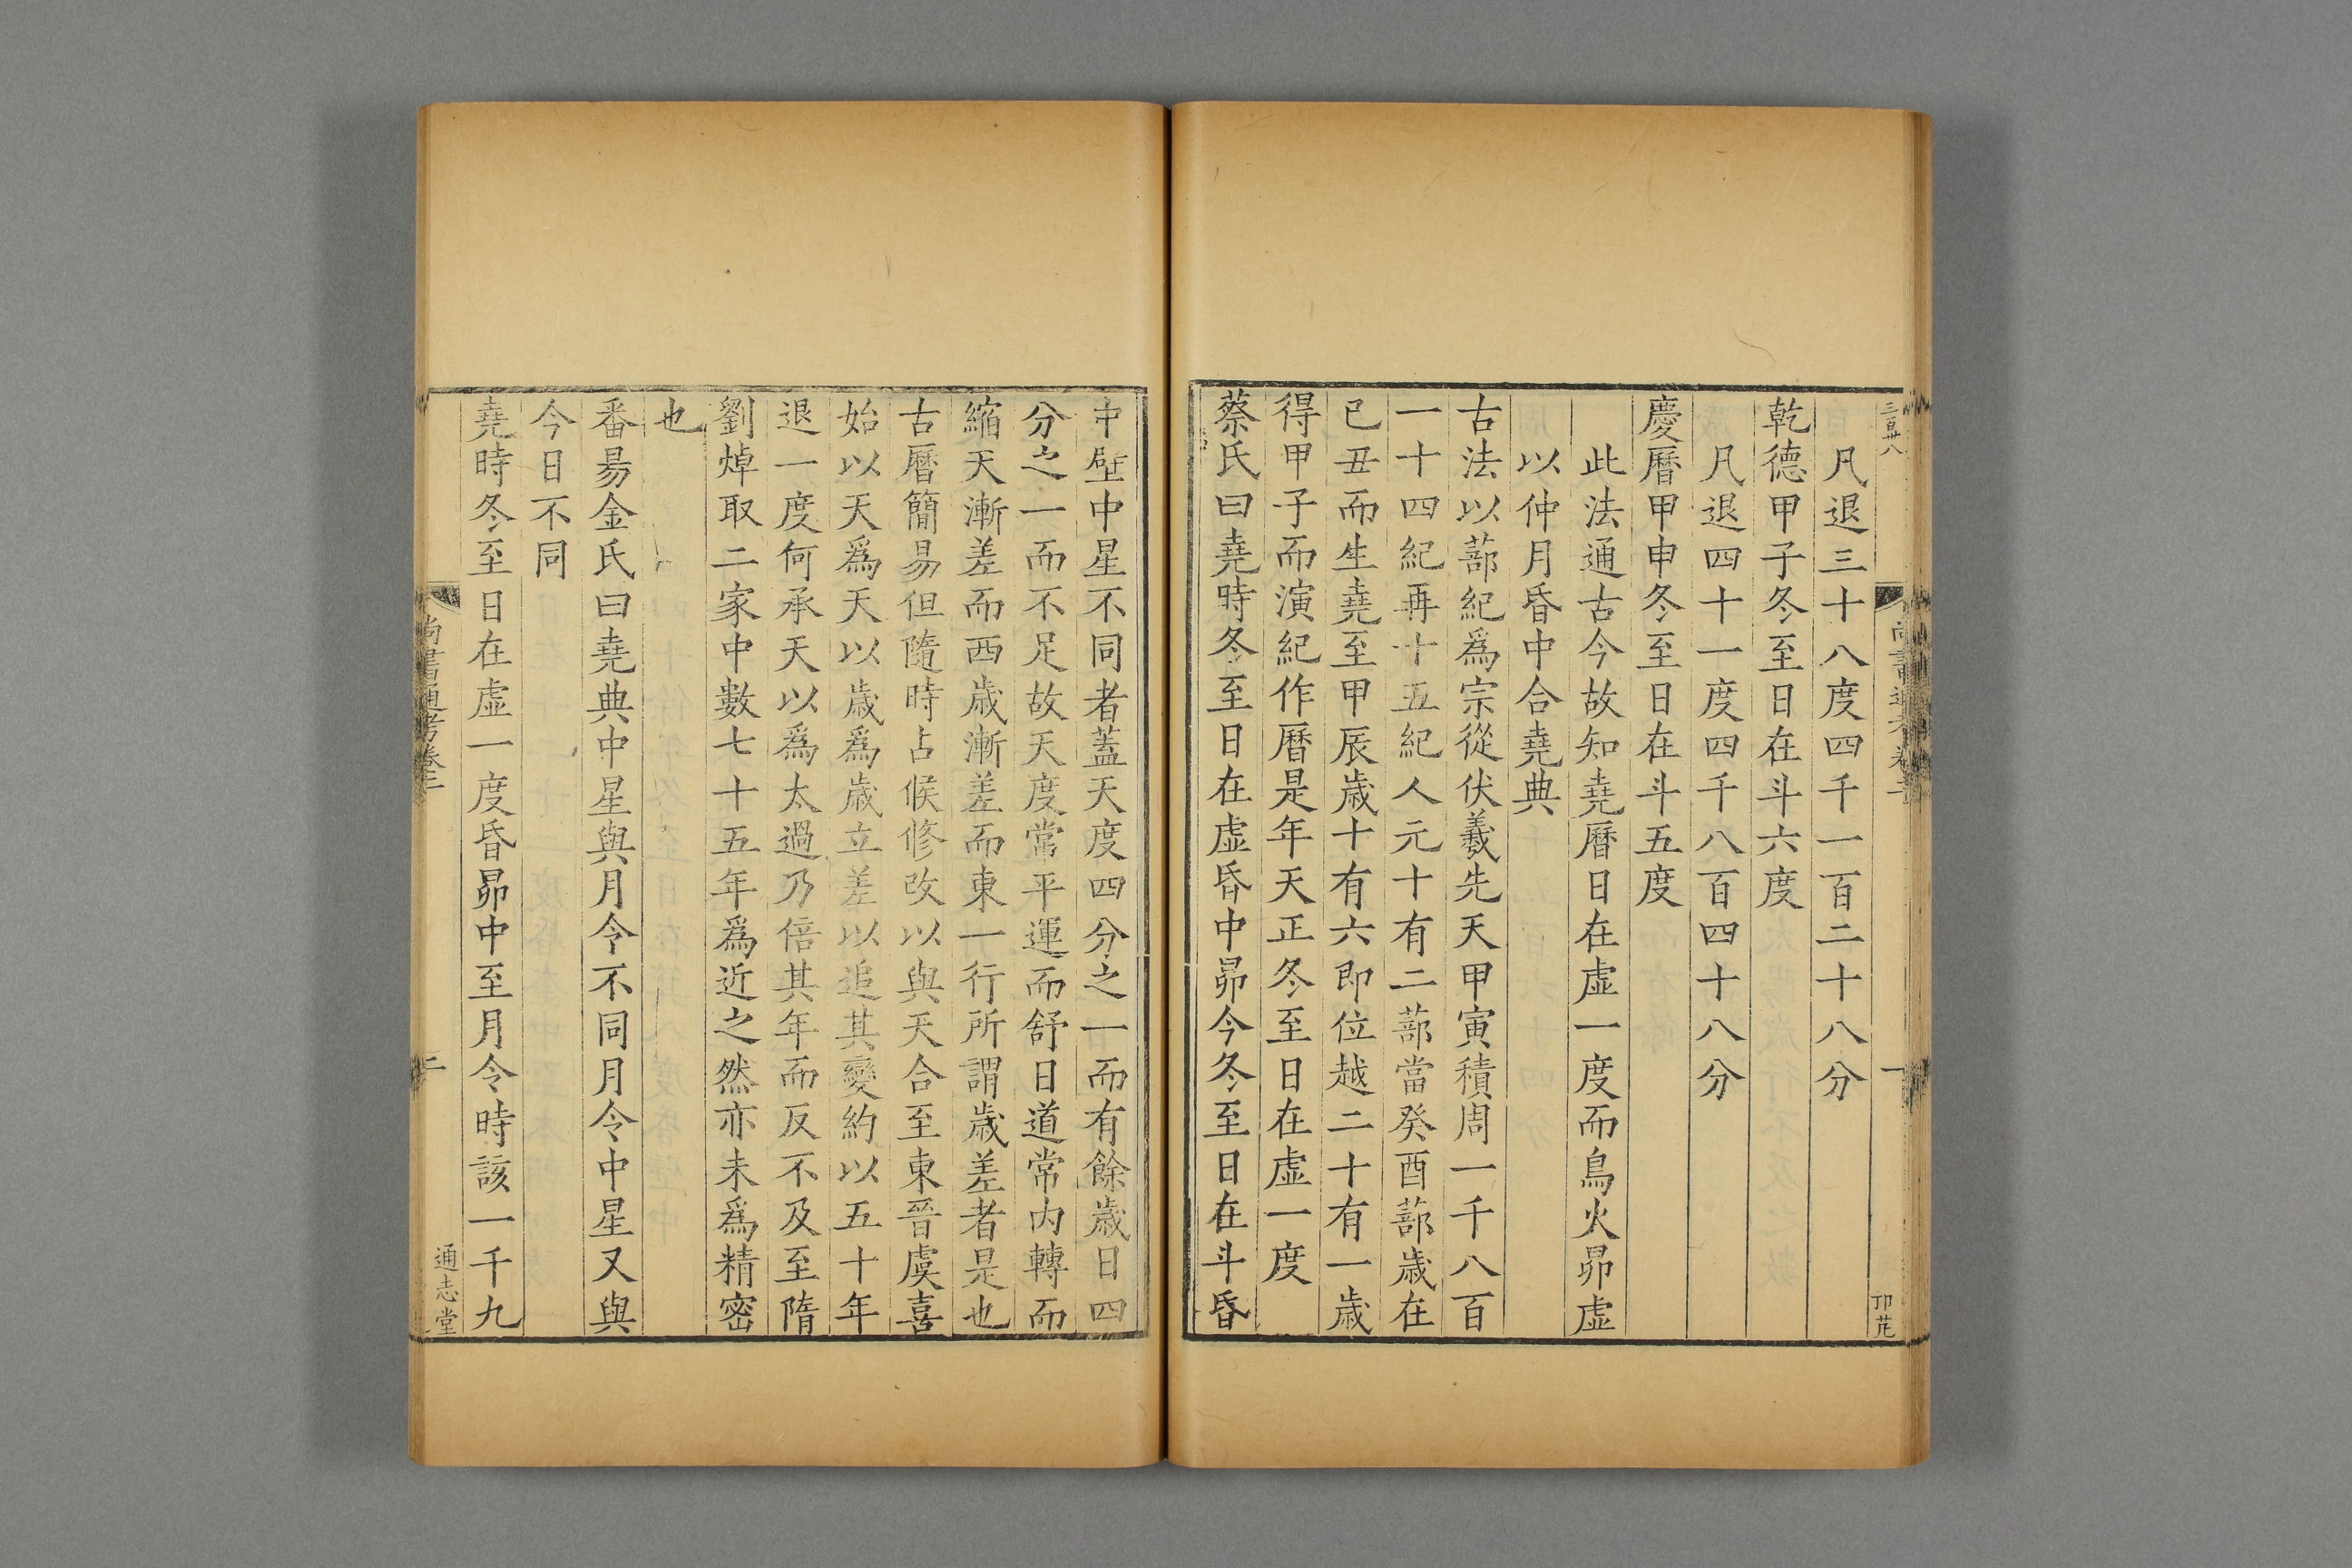 凡退三十八度四千一百二十八分
乾德甲子冬至日在斗六度
凡退四十一度四千八百四十八分
慶曆甲申冬至日在斗五度
此法通古今故知堯曆日在虛一度而鳥火昴虛
以仲月昏中合堯典
古法以蔀紀爲宗從伏羲先天甲寅積周一千八百
一十四紀再十五紀人元十有二蔀當癸酉蔀歲在
已丑而生堯至甲辰歲十有六即位越二十有一歲
得甲子而演紀作曆是年天正冬至日在虛一度
蔡氏曰堯時冬至日在虛昏中昴今冬至日在斗昏
中壁中星不同者蓋天度四分之一而有餘歲日四
分之一而不足故天度常平運而舒日道常內轉而
縮天漸差而西歲漸差而東一行所謂歲差者是也
古曆簡易但隨時占候修改以與天合至東晉虞喜
始以天爲天以歲爲歲立差以追其變約以五十年
退一度何承天以爲太過乃倍其年而反不及至隋
劉焯取二家中數七十五年爲近之然亦未爲精密
也
番昜金氏曰堯典中星與月令不同月令中星又與
今日不同
堯時冬至日在虛一度昏昴中至月令時該一千九
尚書通考卷二
二
通志堂